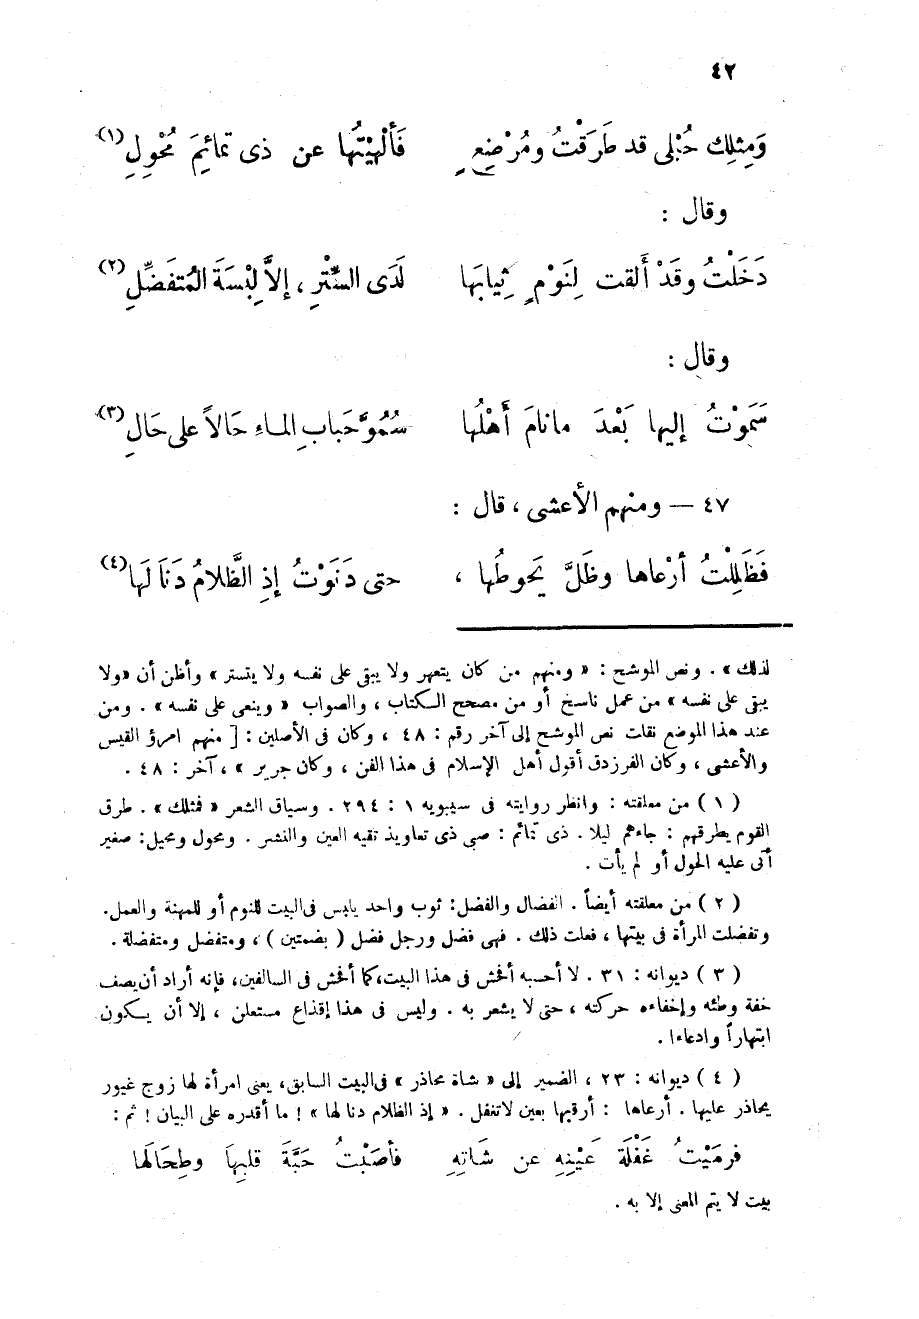 ٤٢
وَمِثلِك حُبْلى قد طَرَقْتُ ومُرْضِعٍ فَأَلْهَيْتُها عن ذى تمائِمَ مُحْوِلِ(١)
وقال :
دَخَلْتُ وقَدْ أَلقت لِنَوْمٍ ثِيابَهَا لَدَى السِّتْرِ ، إلاَّ لِبْسَةَ المُتفَضِّلِ(٢)
وقال :
سَمَوْتُ إليها بَعْدَ مانامَ أَهْلُها سُمُوَّ حَبابِ المـاء حَالاً على حَالِ(٣)
٤٧ — ومنهم الأعشى ، قال :
فَظَلِلْتُ أرْعاها وظَلَّ يَحوطُها ، حتى دَنَوْتُ إذِ الظَّلامُ دَنَا لَهَا(٤)
لذلك » . ونص الموشح : « ومنهم من كان يتعهر ولا يبقى على نفسه ولا يتستر » وأظن أن «ولا
يبقى على نفسه » من عمل ناسخ أو من مصحح الـكتاب ، والصواب « وينعى على نفسه » . ومن
عند هذا الموضع نقلت نص الموشح إلى آخر رقم : ٤٨ ، وكان فى الأصلين : [ منهم امرؤ القيس
والأعشى ، وكان الفرزدق أقول أهل الإسلام فى هذا الفن ، وكان جرير » ، آخر : ٤٨ .
( ١ ) من معلقته : وانظر روايته فى سيبويه ١ : ٢٩٤ . وسياق الشعر « فمثلك » . طرق
القوم يطرقهم : جاءهم ليلا . ذى تمائم : صبى ذى تعاويذ تقيه العين والنشر . ومحول ومحيل: صغير
أتى عليه الحول أو لم يأت .
( ٢ ) من معلقته أيضاً . الفضال والفضل: ثوب واحد يلبس فى البيت للنوم أو للمهنة والعمل.
وتفضلت المرأة فى بيتها ، فعلت ذلك . فهى فضل ورجل فضل ( بضمتين ) ، ومتفضل ومتفضلة .
( ٣ ) ديوانه : ٣١ . لا أحسبه أفحش فى هذا البيت،كما أفحش فى السالفين، فإنه أراد أن يصف
خفة وطئه وإخفاءه حركته ، حتى لا يشعر به . وليس فى هذا إقذاع مستعلن ، إلا أن يكـون
ابتهاراً وادعاءا .
( ٤ ) ديوانه : ٢٣ ، الضمير إلى « شاة محاذر » فى البيت السابق، يعنى امرأة لها زوج غيور
يحاذر عليها . أرعاها : أرقبها بعين لاتغفل . « إذ الظلام دنا لها » ! ما أقدره على البيان ! ثم :
فرمَيْتُ غَفْلَةَ عَيْنِهِ عن شَاتِهِ فأصَبْتُ حَبَّةَ قلبِهَا وطِحَالَها
بيت لا يتم المعنى إلا به .